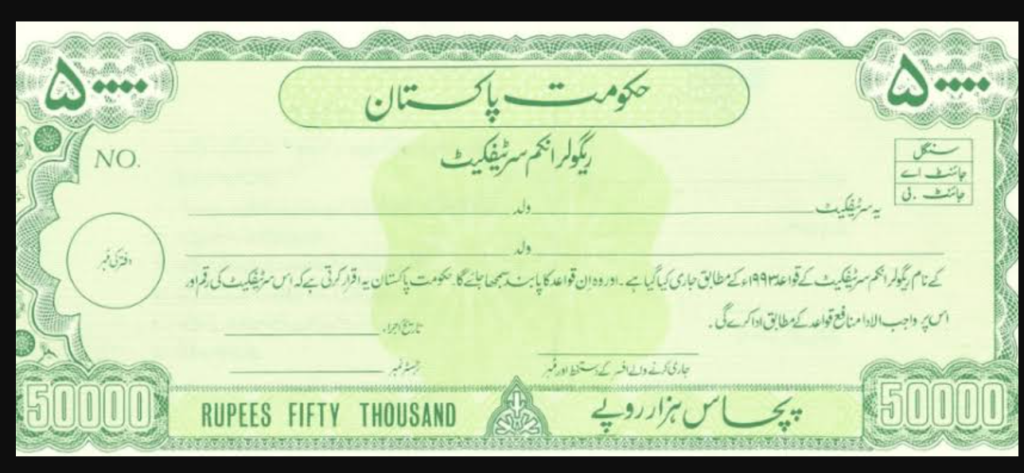 ۵۰۰۰۰
حکومت پاکستان
۵۰۰۰۰
NO.
ریگولر انکم سرٹیفکیٹ
سنگل
جائنٹ اے
جائنٹ ۔ بی
یہ سرٹیفکیٹ ولد
ولد
دفتر کی مہر
کے نام ریگولر انکم سرٹیفکیٹ کے قواعد ۱۹۹۳ء کے مطابق جاری کیا گیا ہے ۔ اور وہ ان قواعد کا پابند سمجھا جائے گا۔ حکومت پاکستان یہ اقرار کرتی ہے کہ اس سرٹیفکیٹ کی رقم اور
اس پر واجب الادا منافع قواعد کے مطابق ادا کرے گی ۔
تاریخ اجراء
جاری کرنے والے افسر کے دستخط اور مہر
رجسٹر نمبر
50000
RUPEES FIFTY THOUSAND
پچاس ہزار روپے
50000